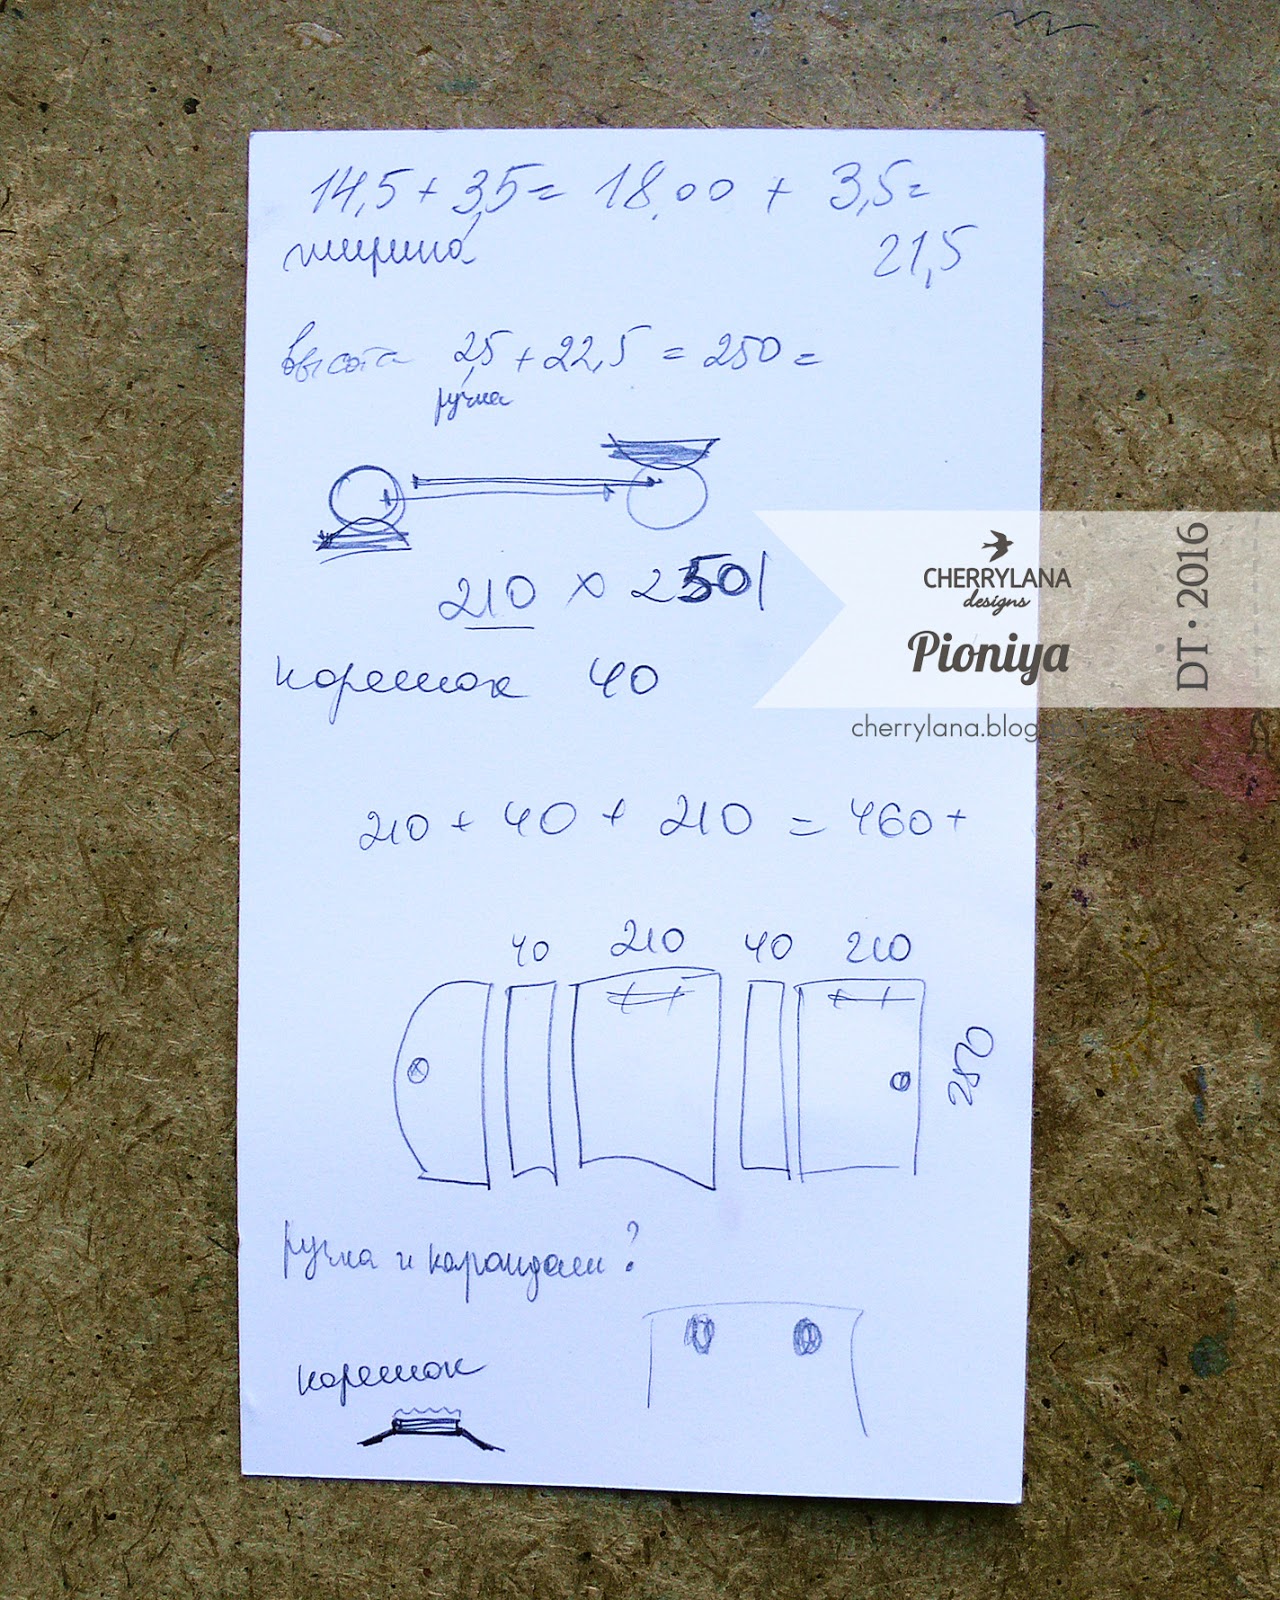 14,5 + 3,5 = 18,00 + 3,5 =
21,5
ширина
высота 2,5 + 22,5 = 250 =
ручка
210 x 250
корешок 40
210 + 40 + 210 = 460 +
40 210 40 210
250
ручка и карандаш?
корешок
CHERRYLANA
designs
Pioniya
DT · 2016
cherrylana.blog